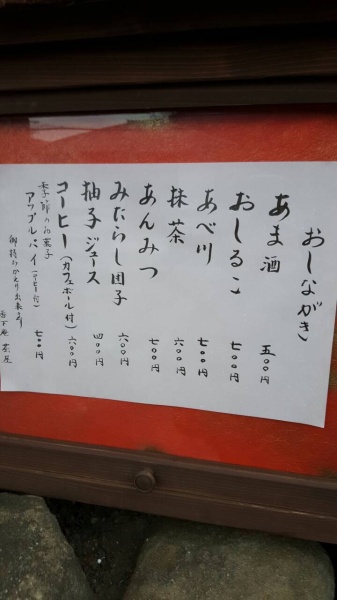 おしながき
あま酒 五〇〇円
おしるこ 七〇〇円
あべ川 七〇〇円
抹茶 六〇〇円
あんみつ 七〇〇円
みたらし団子 六〇〇円
柚子ジュース 四〇〇円
コーヒー(カフェボール付) 六〇〇円
季節の和菓子
アップルパイ(コーヒー付) 七〇〇円
御持ちかえり出来ます
茶屋